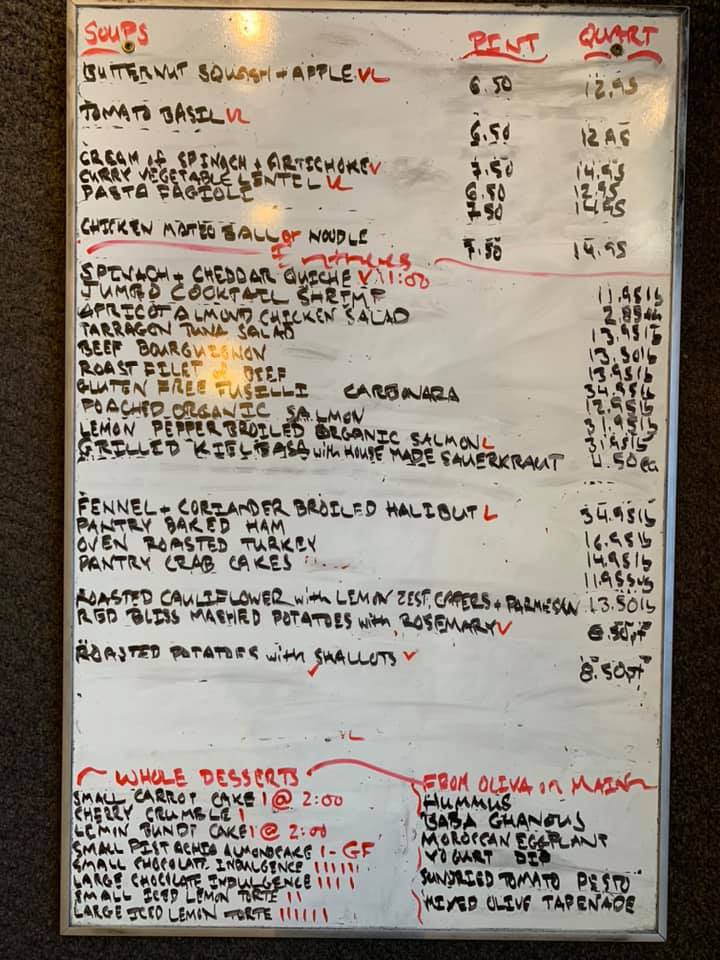 SOUPS PINT QUART
BUTTERNUT SQUASH + APPLE VL 6.50 12.95
TOMATO BASIL VL 6.50 12.95
CREAM OF SPINACH + ARTICHOKE V 7.50 14.95
CURRY VEGETABLE LENTIL VL 6.50 12.95
PASTA FAGIOLI 7.50 14.95
CHICKEN MATZO BALL or NOODLE 7.50 14.95
SPINACH + CHEDDAR QUICHE V 11:00
JUMBO COCKTAIL SHRIMP
APRICOT ALMOND CHICKEN SALAD
TARRAGON TUNA SALAD
BEEF BOURGUIGNON
ROAST FILET of BEEF
GLUTEN FREE FUSILLI CARBONARA
POACHED ORGANIC SALMON
LEMON PEPPER BROILED ORGANIC SALMON L
GRILLED KIELBASA with HOUSE MADE SAUERKRAUT
FENNEL + CORIANDER BROILED HALIBUT L 34.95lb
PANTRY BAKED HAM 16.95lb
OVEN ROASTED TURKEY 14.95lb
PANTRY CRAB CAKES
ROASTED CAULIFLOWER with LEMON ZEST, CAPERS + PARMESAN 13.50lb
RED BLISS MASHED POTATOES with ROSEMARY V 6.50pt
ROASTED POTATOES with SHALLOTS V 8.50pt
VL
WHOLE DESSERTS
SMALL CARROT CAKE 1 @ 2:00
CHERRY CRUMBLE 1
LEMIN BUNDT CAKE 1 @ 2:00
SMALL PISTACHIO ALMONDCAKE 1 - GF
SMALL CHOCOLATE INDULGENCE
LARGE CHOCOLATE INDULGENCE
SMALL ICED LEMON TORTE 11
LARGE ICED LEMON TORTE
FROM OLIVA on MAIN
HUMMUS
BABA GHANOUS
MOROCCAN EGGPLANT
YOGURT DIP
SUNDRIED TOMATO PESTO
MIXED OLIVE TAPENADE